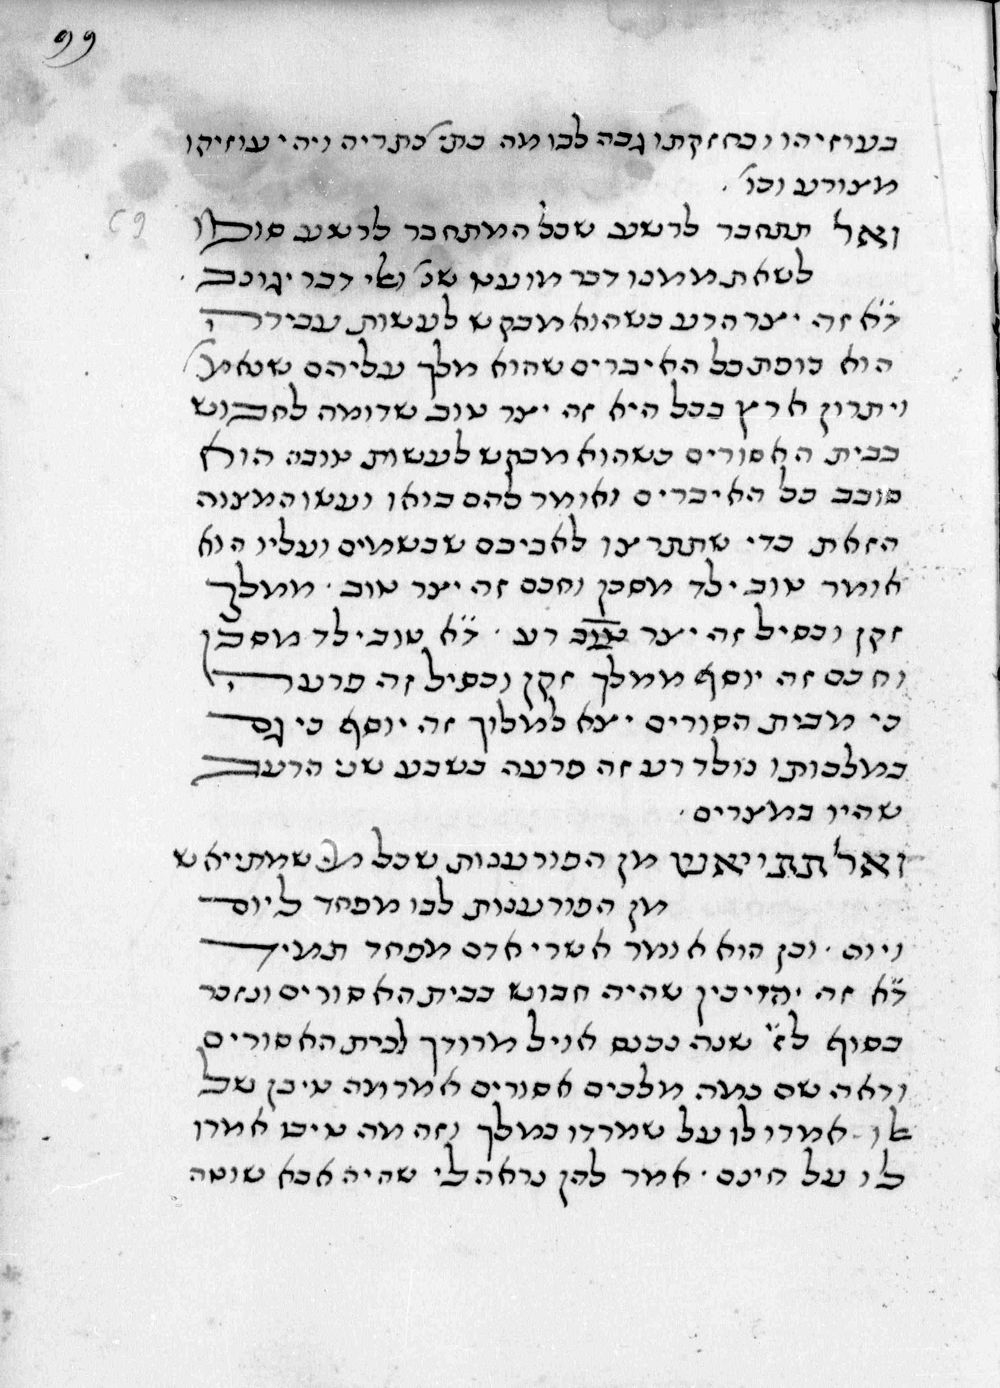 99
בעוזיהו ובחזקתו גבה לבו מה כת׳ בתריה ויהי עוזיהו
מצורע וכו׳.
69
ואל תתחבר לרשע שכל המתחבר לרשע סופו
לשאת ממנו דבר מועט שנ׳ ואלי דבר יגונב.
ד״א זה יצר הרע כשהוא מבקש לעשות עבירה
הוא כופת כל האיברים שהוא מלך עליהם שנאמ׳
ויתרון ארץ בכל היא זה יצר טוב שדומה לחבוש
בבית האסורים כשהוא מבקש לעשות טובה הוא
סובב כל האיברים ואומר להם בואו ועשו המצוה
הזאת כדי שתתרצו לאביכם שבשמים ועליו הוא
אומר טוב ילד מסכן וחכם זה יצר טוב. ממלך
זקן וכסיל זה יצר טוב רע. ד״א טוב ילד מסכן
וחכם זה יוסף ממלך זקן וכסיל זה פרעה
כי מבית הסורים יצא למלוך זה יוסף כי גם
במלכותו נולד רע זה פרעה בשבע שני הרעב
שהיו במצרים.
ואל תתייאש מן הפורענות שכל מי שמתיאש
מן הפורענות לבו מפחד ליום
ויום. וכן הוא אומר אשרי אדם מפחד תמיד
ד״א זה יהויכין שהיה חבוש בבית האסורים ונזכר
בסוף ל״ז שנה נכנס אויל מרודך לבית האסורים
וראה שם כמה מלכים אסורים אמר מה טיבן של
אלו. אמרו לו על שמרדו במלך וזה מה טיבו אמרו
לו על חינם. אמר להן נראה לי שהיה אבא שוטה